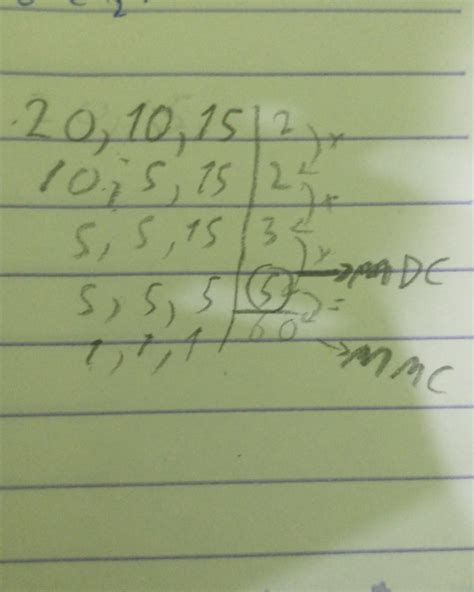 20, 10, 15 | 2
10, 5, 15 | 2 x
5, 5, 15 | 3 x
5, 5, 5 | 5 x → MDC
1, 1, 1 | 60 =
→ MMC